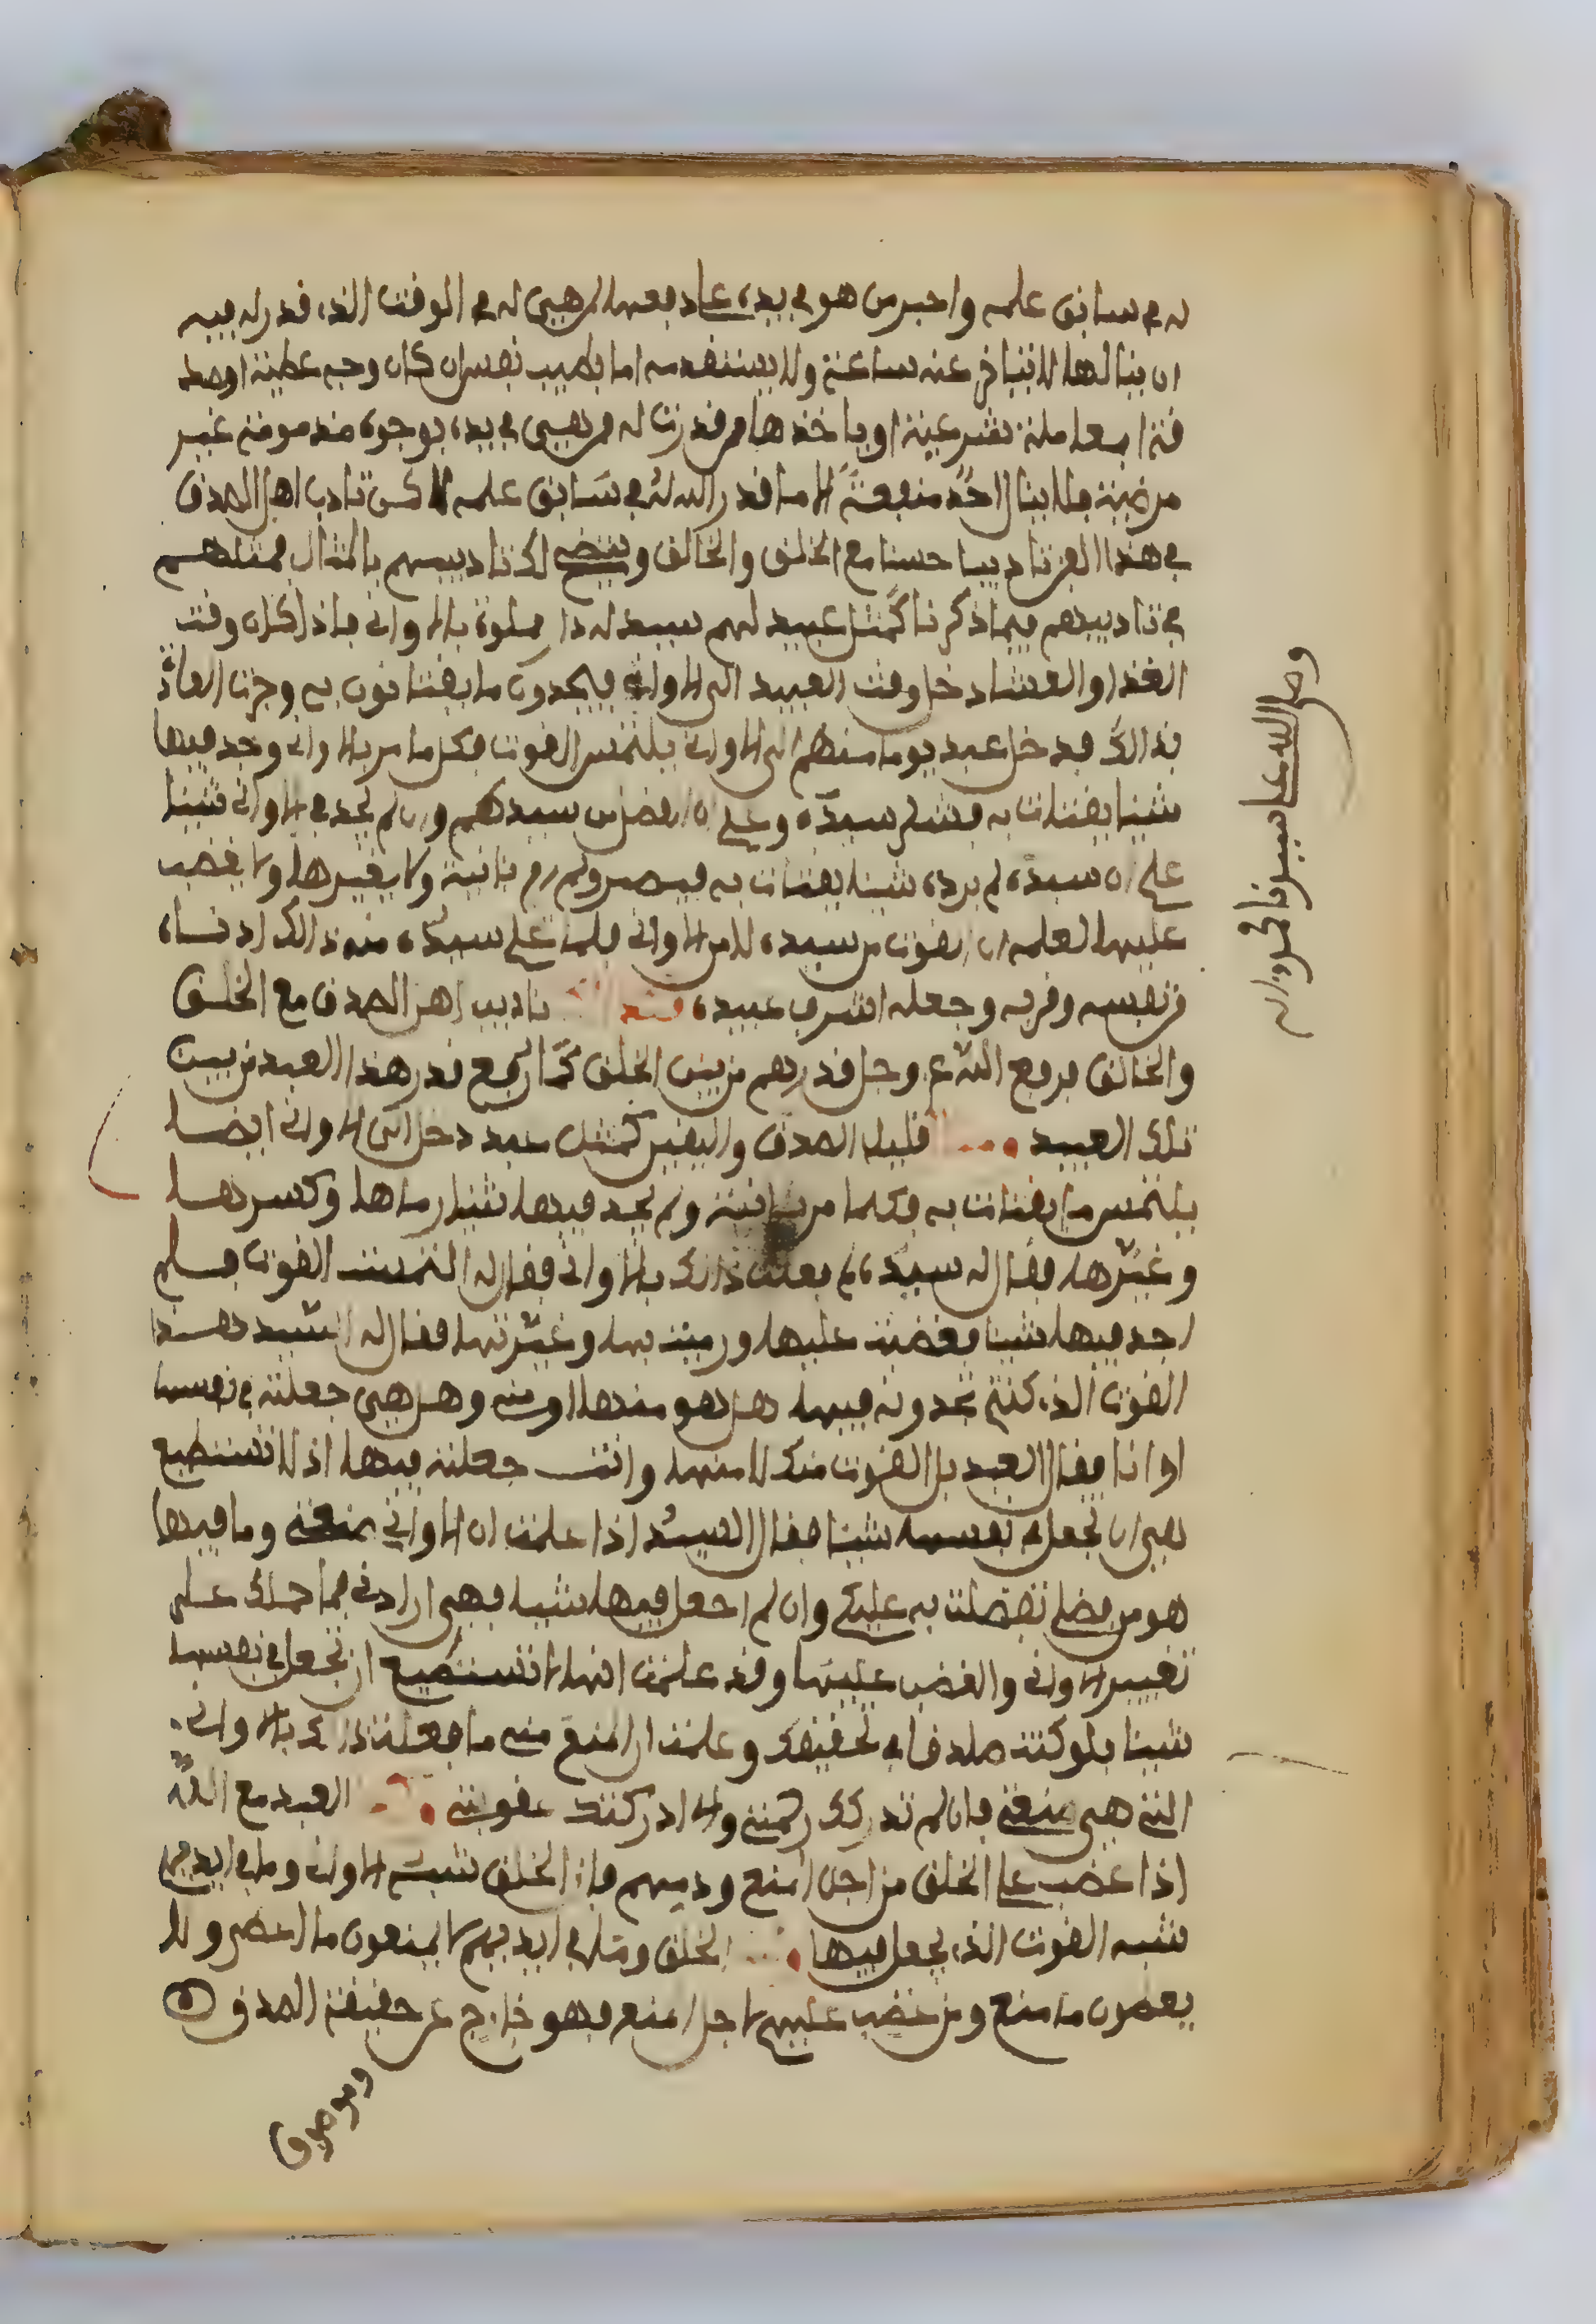 له في سابق علمه واجبر من هو في يده على دفعها لمن هيئ له في الوقت الذي قدر له فيه
ان ينالها لا يتاخر عنه ساعة ولا يستقدمه اما بطيب نفس ان كان وجه عطية او صد
قة او معاملة شرعية او ياخذها من قدرت له من هيئ في يده بوجوه مذمومة غير
مرضية فلا ينال احد منفعة الا ما قدر الله له في سابق علمه لاكن تادب اهل الصدق
في هذا العز تاديبا حسنا مع الخلق والخالق ويتضح لك تاديبهم بالمثال فمثلهم
في تاديبهم فيما ذكرنا كمثل عبيد لهم سيد له دار مملوة بالاواني فاذا كان وقت
الغدا والعشا دخل وقت العبيد الى الاواني فيجدون ما يقتاتون به وجرت العادة
بذالك فدخل عبد يوما منهم الى الاواني يلتمس القوت فكل ما مر بالاواني وجد فيها
شيئا يقتات به فشكر سيده وعلم ان الفضل من سيدهم وان لم يجد في الاواني شيئا
علم ان سيده لم يرد شيئا يقتات به فيصبر ولم يرم بانية ولا يغيرها ولا يغضب
عليها لعلمه ان القوت من سيده لا من الاواني فلما علم سيده منه ذالك ادناه
من نفسه وقربه وجعله اشرف عبيده تاديب اهل الصدق مع الخلق
والخالق فرفع الله عز وجل قدرهم من بين الخلق كما رفع قدر هذا العبد من بين
تلك العبيد قليل الصدق واليقين كمثل عبد دخل الى الاواني ايضا
يلتمس ما يقتات به فكلما مر بانية ولم يجد فيها شيئا رماها وكسرها
وغيرها فقال له سيده لم فعلت ذالك بالاواني فقال له التمست القوت فلم
اجد فيها شيئا فغضبت عليها ورميت بها وغيرتها فقال له السيد هذا
القوت الذي كنتم تجدونه فيها هل هو منها او مني وهل هي جعلته في نفسها
او انا فقال العبد بل القوت منك لا منها وانت جعلته فيها اذ لا تستطيع
هي ان تجعل في نفسها شيئا فقال السيد اذا علمت ان الاواني وما فيها
هو من فضلي تفضلت به عليكم وان لم اجعل فيها شيئا فهي ارادتي فما حملك على
تغيير الاواني والغضب عليها وقد علمت انها لا تستطيع ان تجعل في نفسها
شيئا فلو كنت صادقا في تحقيقك وعلمت ان المنع مني ما فعلت ذالك بالاواني
التي هي فان لم تدركك رحمتي والا ادركتك عقوبتي العبد مع الله
اذا غضب على الخلق من اجل المنع وذمهم فان الخلق شبه الاواني وما في ايديهم
شبه القوت الذي يجعل فيها الخلق وما في ايديهم لا يمنعون ما اعطى ولا
يعطون ما منع ومن غضب عليهم لاجل المنع فهو خارج عن حقيقة الصدق
وموصوف
وصلى الله على سيدنا محمد واله